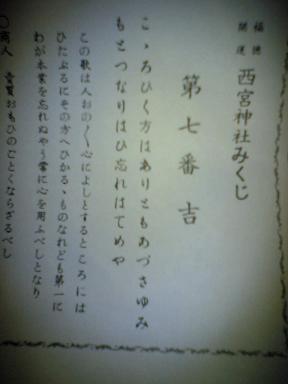 福徳開運 西宮神社みくじ
第七番吉
こゝろひく方はありともあづさゆみ
もとつなりはひ忘れはてめや
この歌は人おの〳〵心によしとするところには
ひたぶるにその方へひかるゝものなれども第一に
わが本業を忘れぬやう常に心を用ふべしとなり
〇商人 売買おもひのごとくならざるべし